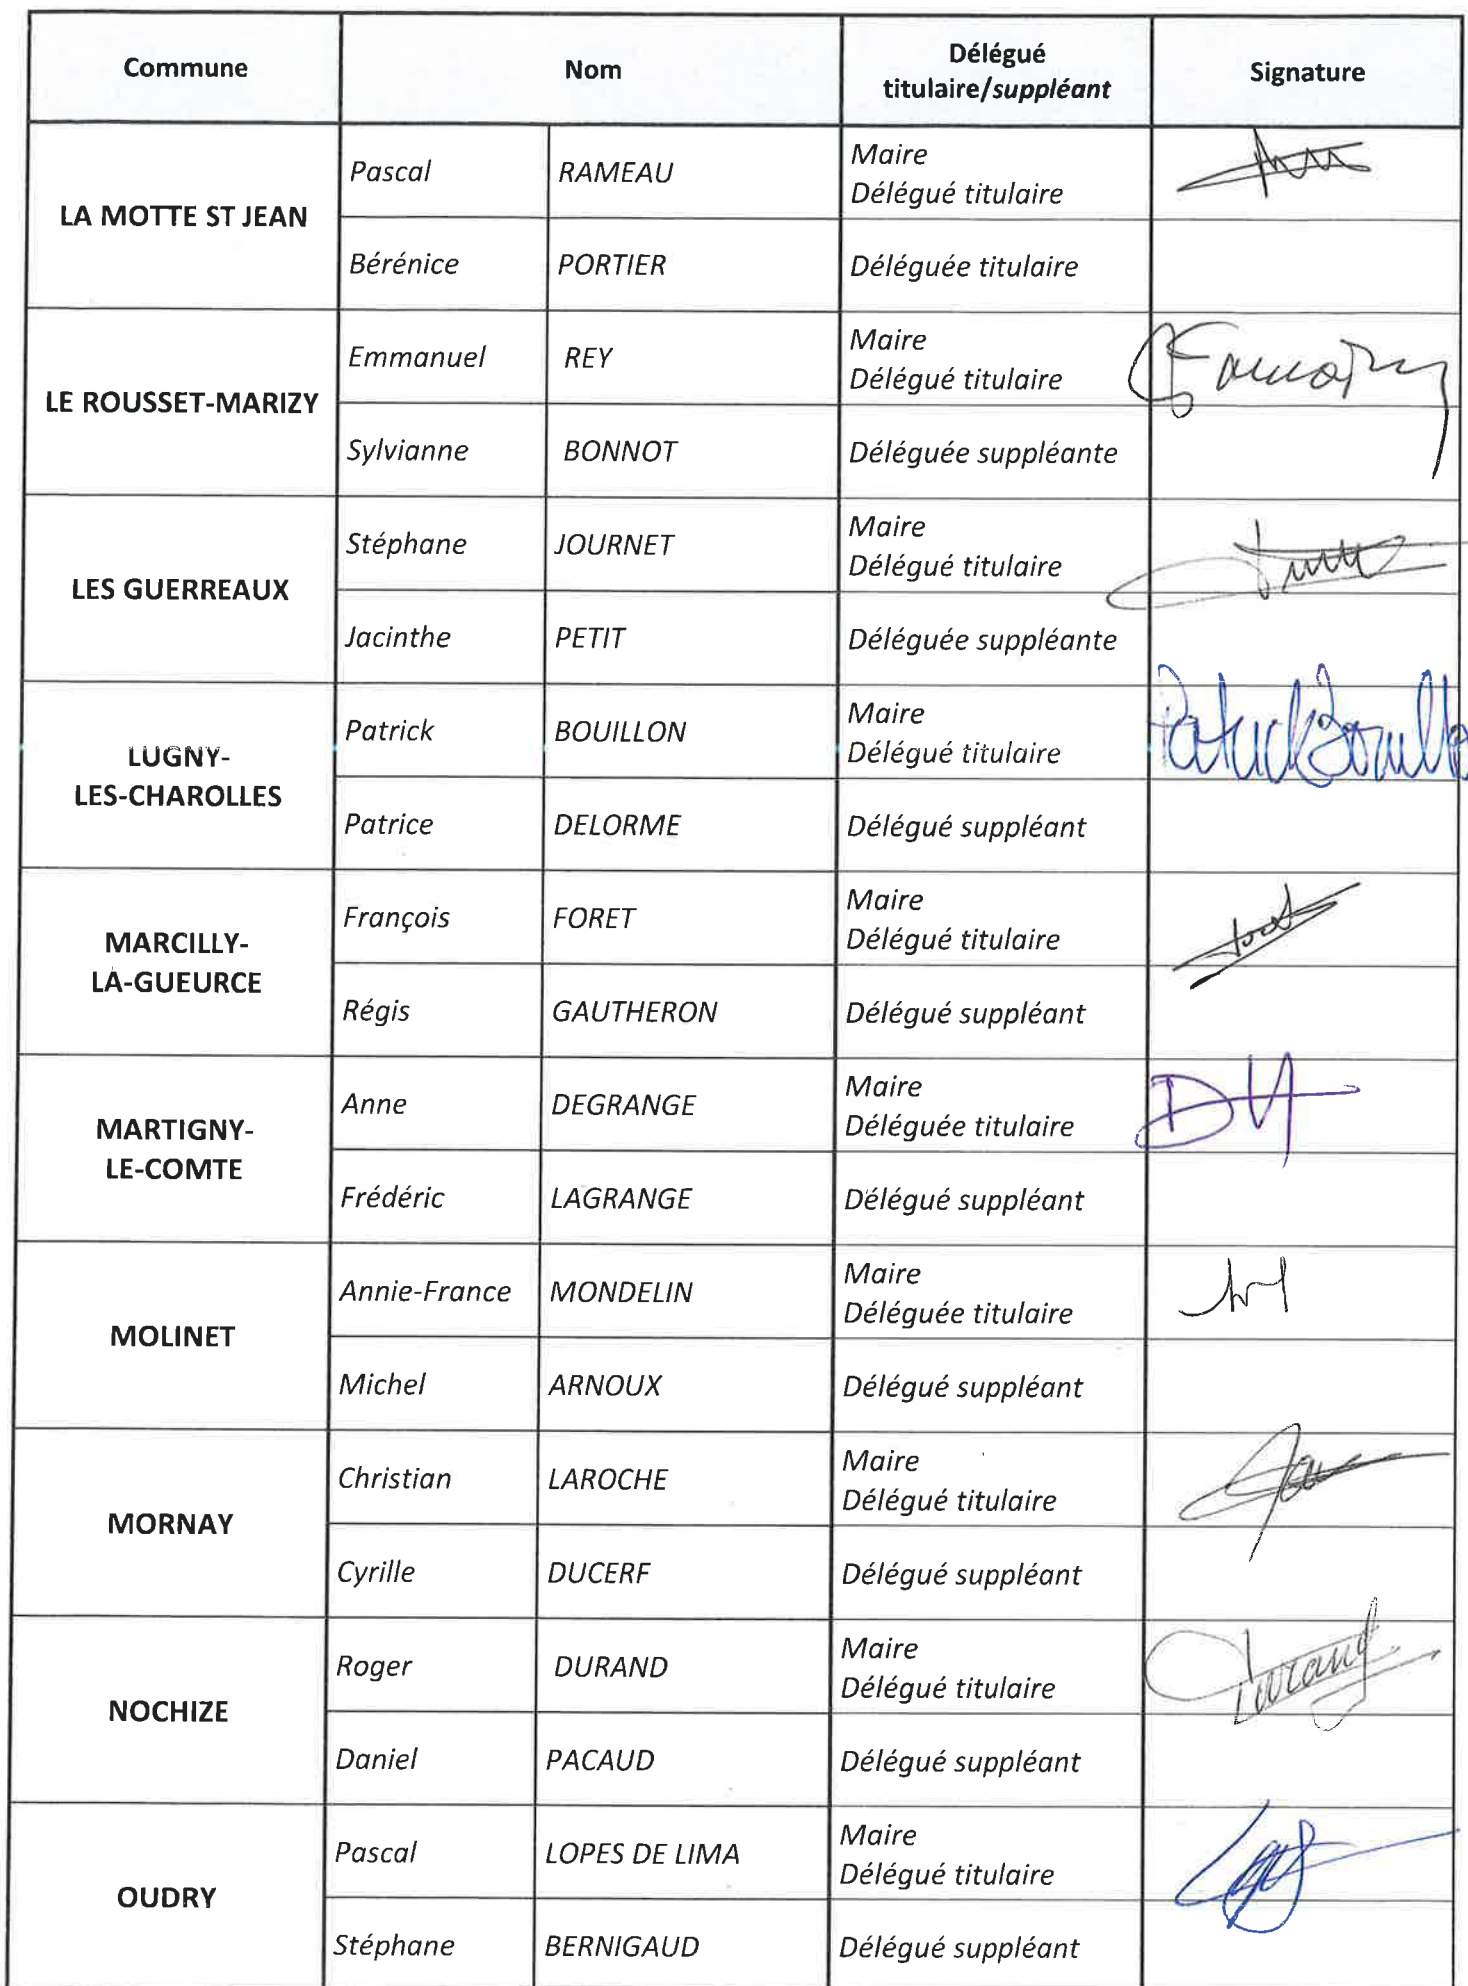 Commune
Nom
Délégué
titulaire/suppléant
Signature
LA MOTTE ST JEAN
Pascal
RAMEAU
Maire
Délégué titulaire
Bérénice
PORTIER
Déléguée titulaire
LE ROUSSET-MARIZY
Emmanuel
REY
Maire
Délégué titulaire
Sylvianne
BONNOT
Déléguée suppléante
LES GUERREAUX
Stéphane
JOURNET
Maire
Délégué titulaire
Jacinthe
PETIT
Déléguée suppléante
LUGNY-
LES-CHAROLLES
Patrick
BOUILLON
Maire
Délégué titulaire
Patrick Bouillo
Patrice
DELORME
Délégué suppléant
MARCILLY-
LA-GUEURCE
François
FORET
Maire
Délégué titulaire
Régis
GAUTHERON
Délégué suppléant
MARTIGNY-
LE-COMTE
Anne
DEGRANGE
Maire
Déléguée titulaire
Frédéric
LAGRANGE
Délégué suppléant
MOLINET
Annie-France
MONDELIN
Maire
Déléguée titulaire
Michel
ARNOUX
Délégué suppléant
MORNAY
Christian
LAROCHE
Maire
Délégué titulaire
Cyrille
DUCERF
Délégué suppléant
NOCHIZE
Roger
DURAND
Maire
Délégué titulaire
Durand
Daniel
PACAUD
Délégué suppléant
OUDRY
Pascal
LOPES DE LIMA
Maire
Délégué titulaire
Stéphane
BERNIGAUD
Délégué suppléant